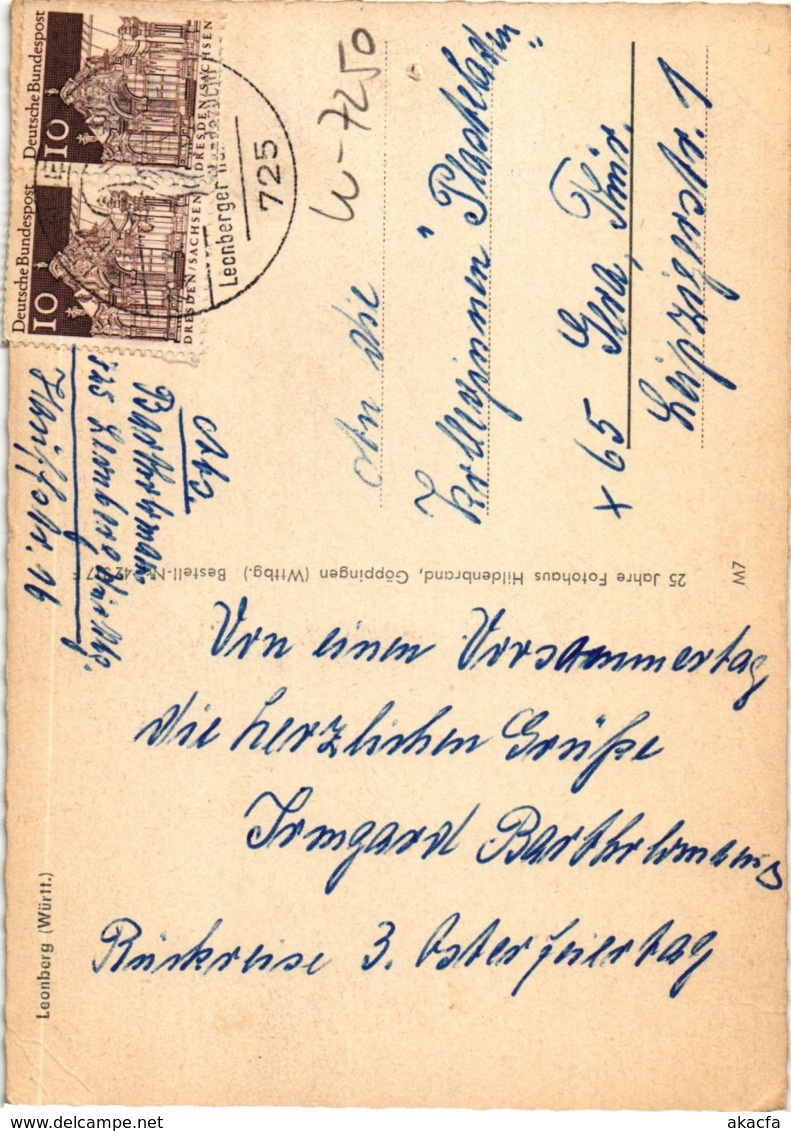 Deutsche Bundespost
10
DRESDEN/SACHSEN
Deutsche Bundespost
10
DRESDEN/SACHSEN
725
Leonberger
W-7250
An die
Kolleginnen "Plasteladen"
x 65 Gera, Thür.
Leipzigerstr. 1
Abs
Bartholomäus
725 Leonberg, Württbg.
16
25 Jahre Fotohaus Hildenbrand, Göppingen (Wttbg.) Bestell-Nr.
W7
Leonberg (Württ.)
Von einem Vorsommertag
die herzlichen Grüße
Irmgard Bartholomäus
Rückreise 3. Osterfeiertag
delcampe.net
akacfa